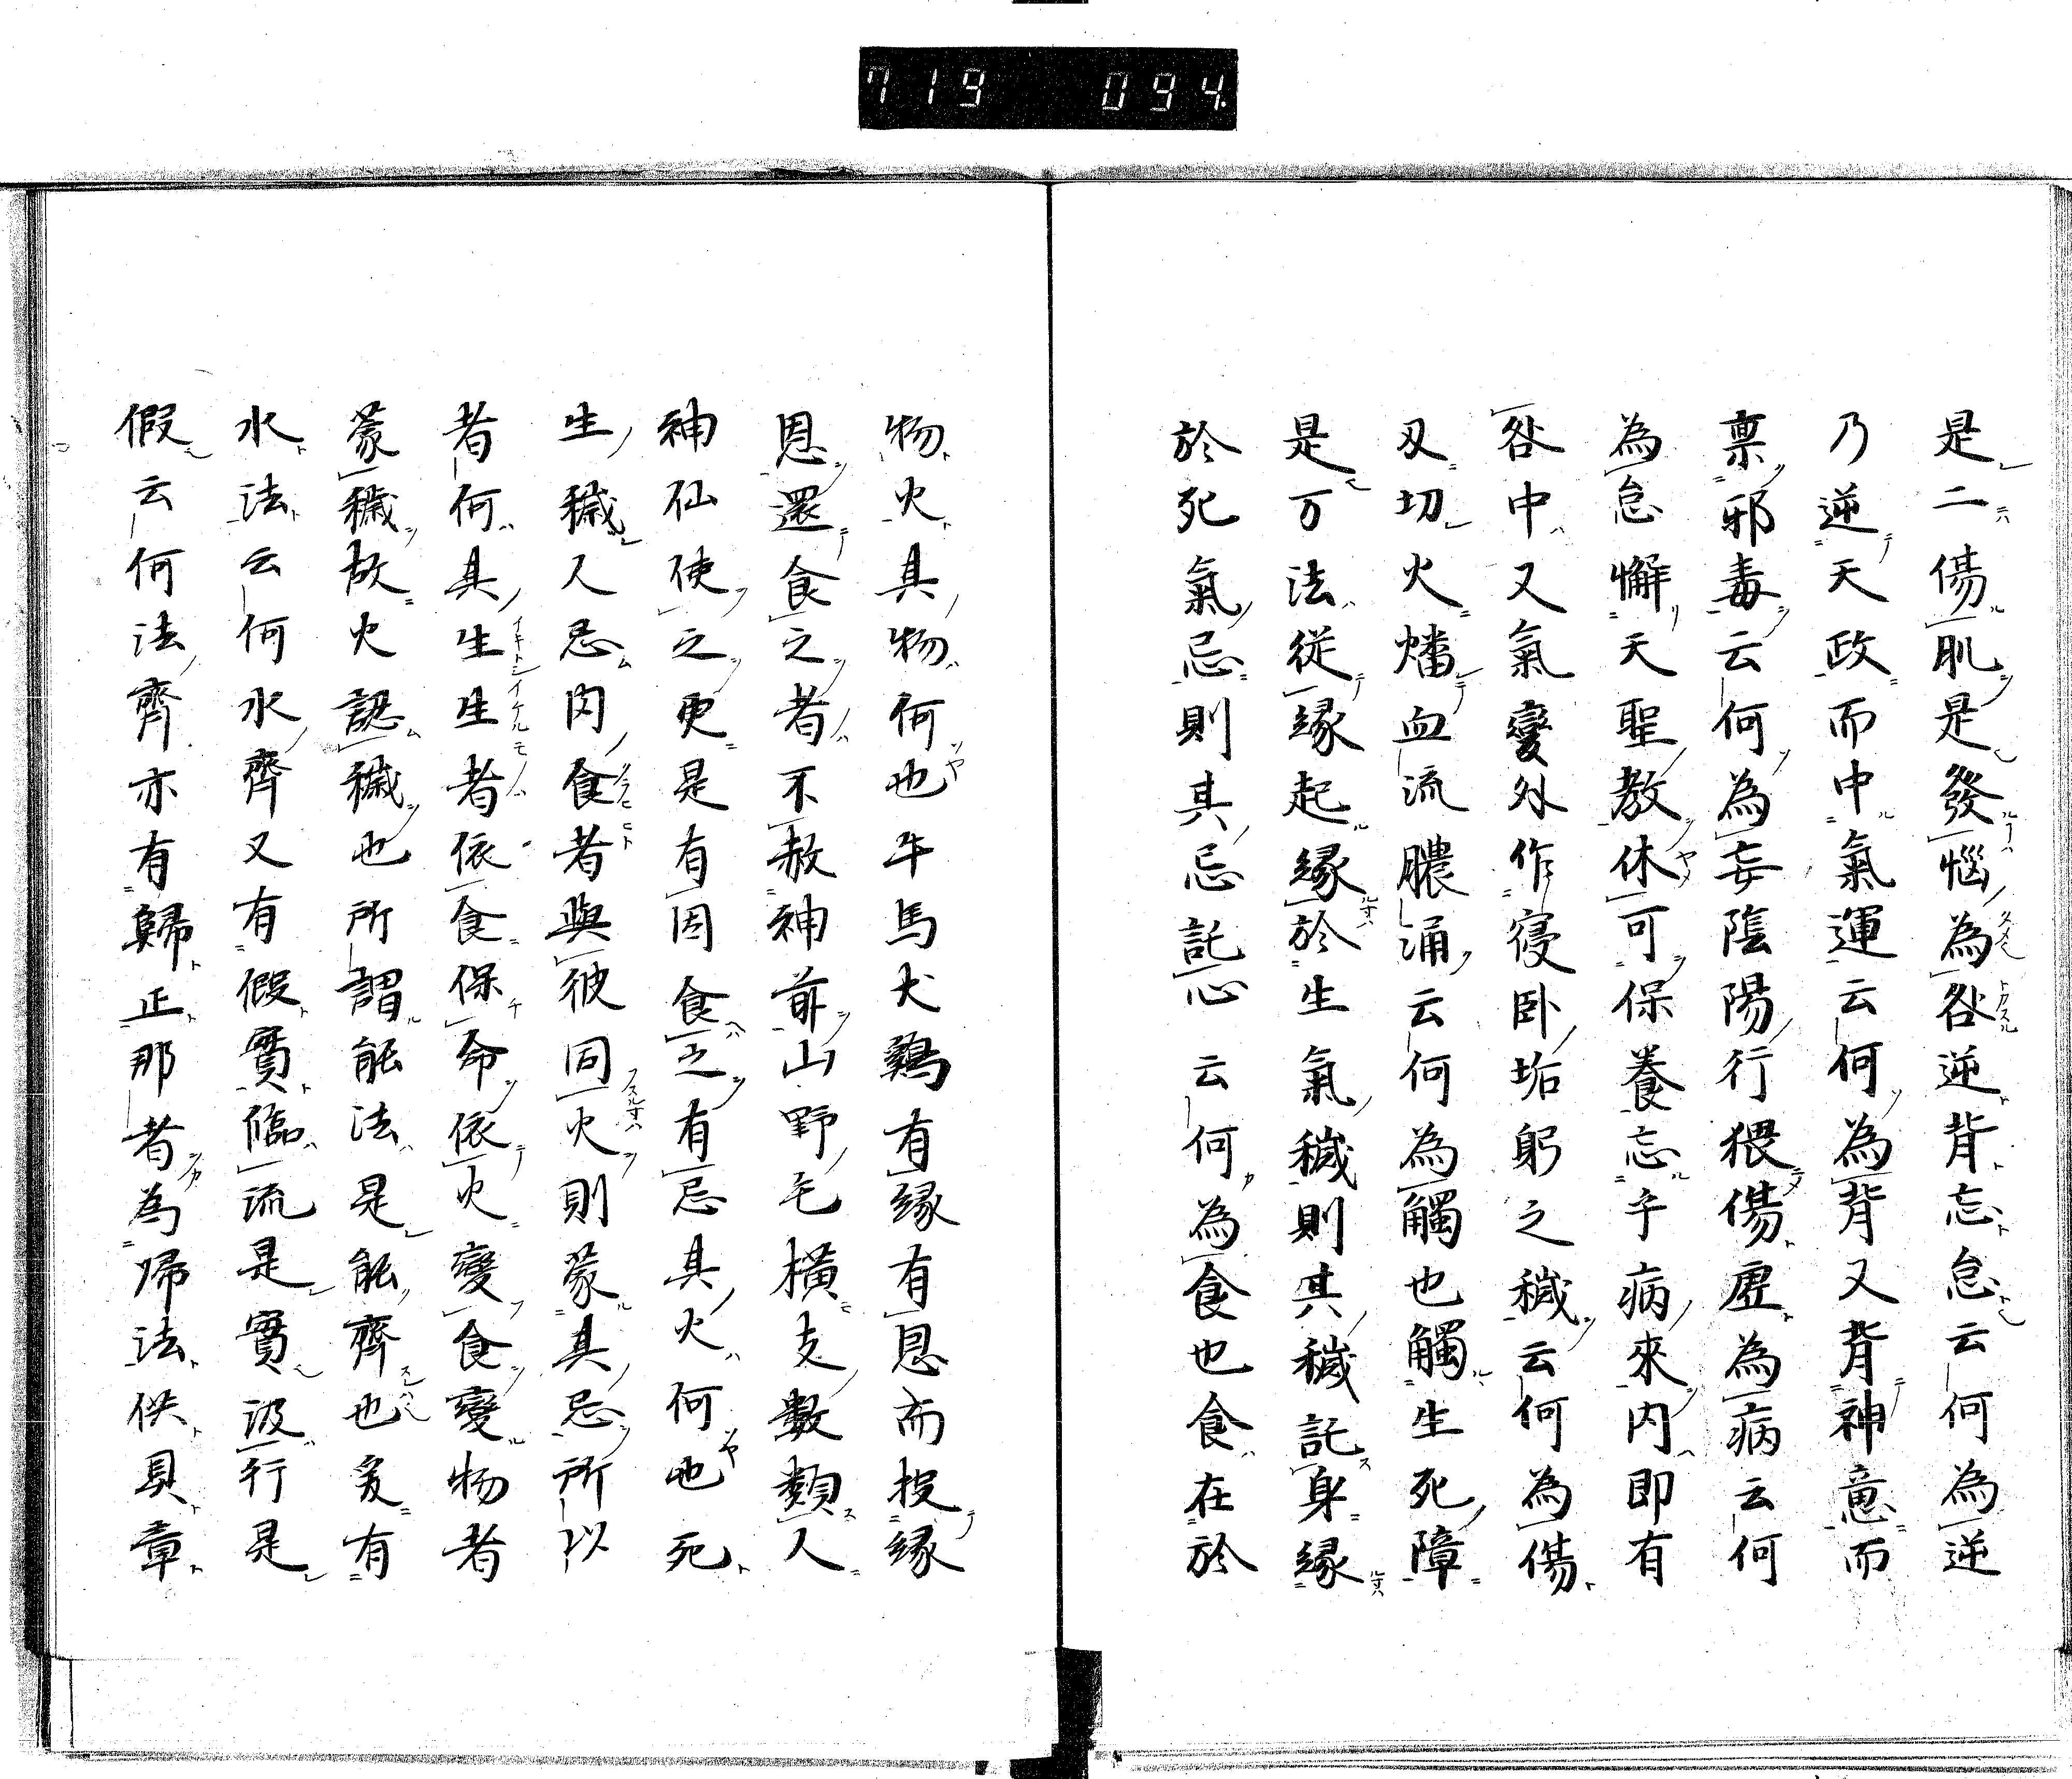 719 094
是二傷肌是發惱為咎逆背忘怠云何為逆
乃逆天政而中氣運云何為背又背神意而
禀邪毒云何為妄陰陽行猥傷虛為病云何
為怠懈天聖教休可保養忘乎病來内即有
咎中又氣變外作寢卧垢躬之穢云何為傷
刄切火燔血流膿涌云何為觸也觸生死障
是万法從緣起緣於生氣穢則其穢託身緣
於死氣忌則其忌託心云何為食也食在於
物火具物何也牛馬犬鷄有緣有恩而投緣
恩還食之者不赦神前山野毛橫支數類人
神仙使之更是有因食之有忌其火何也死
生穢人忌内食者與彼同火則蒙其忌所以
者何具生生者依食保命依火變食變物者
蒙穢故火認穢也所謂能法是能齊也爰有
水法云何水齊又有假實臨流是實汲行是
假云何法齊亦有歸正那者為帰法供具章